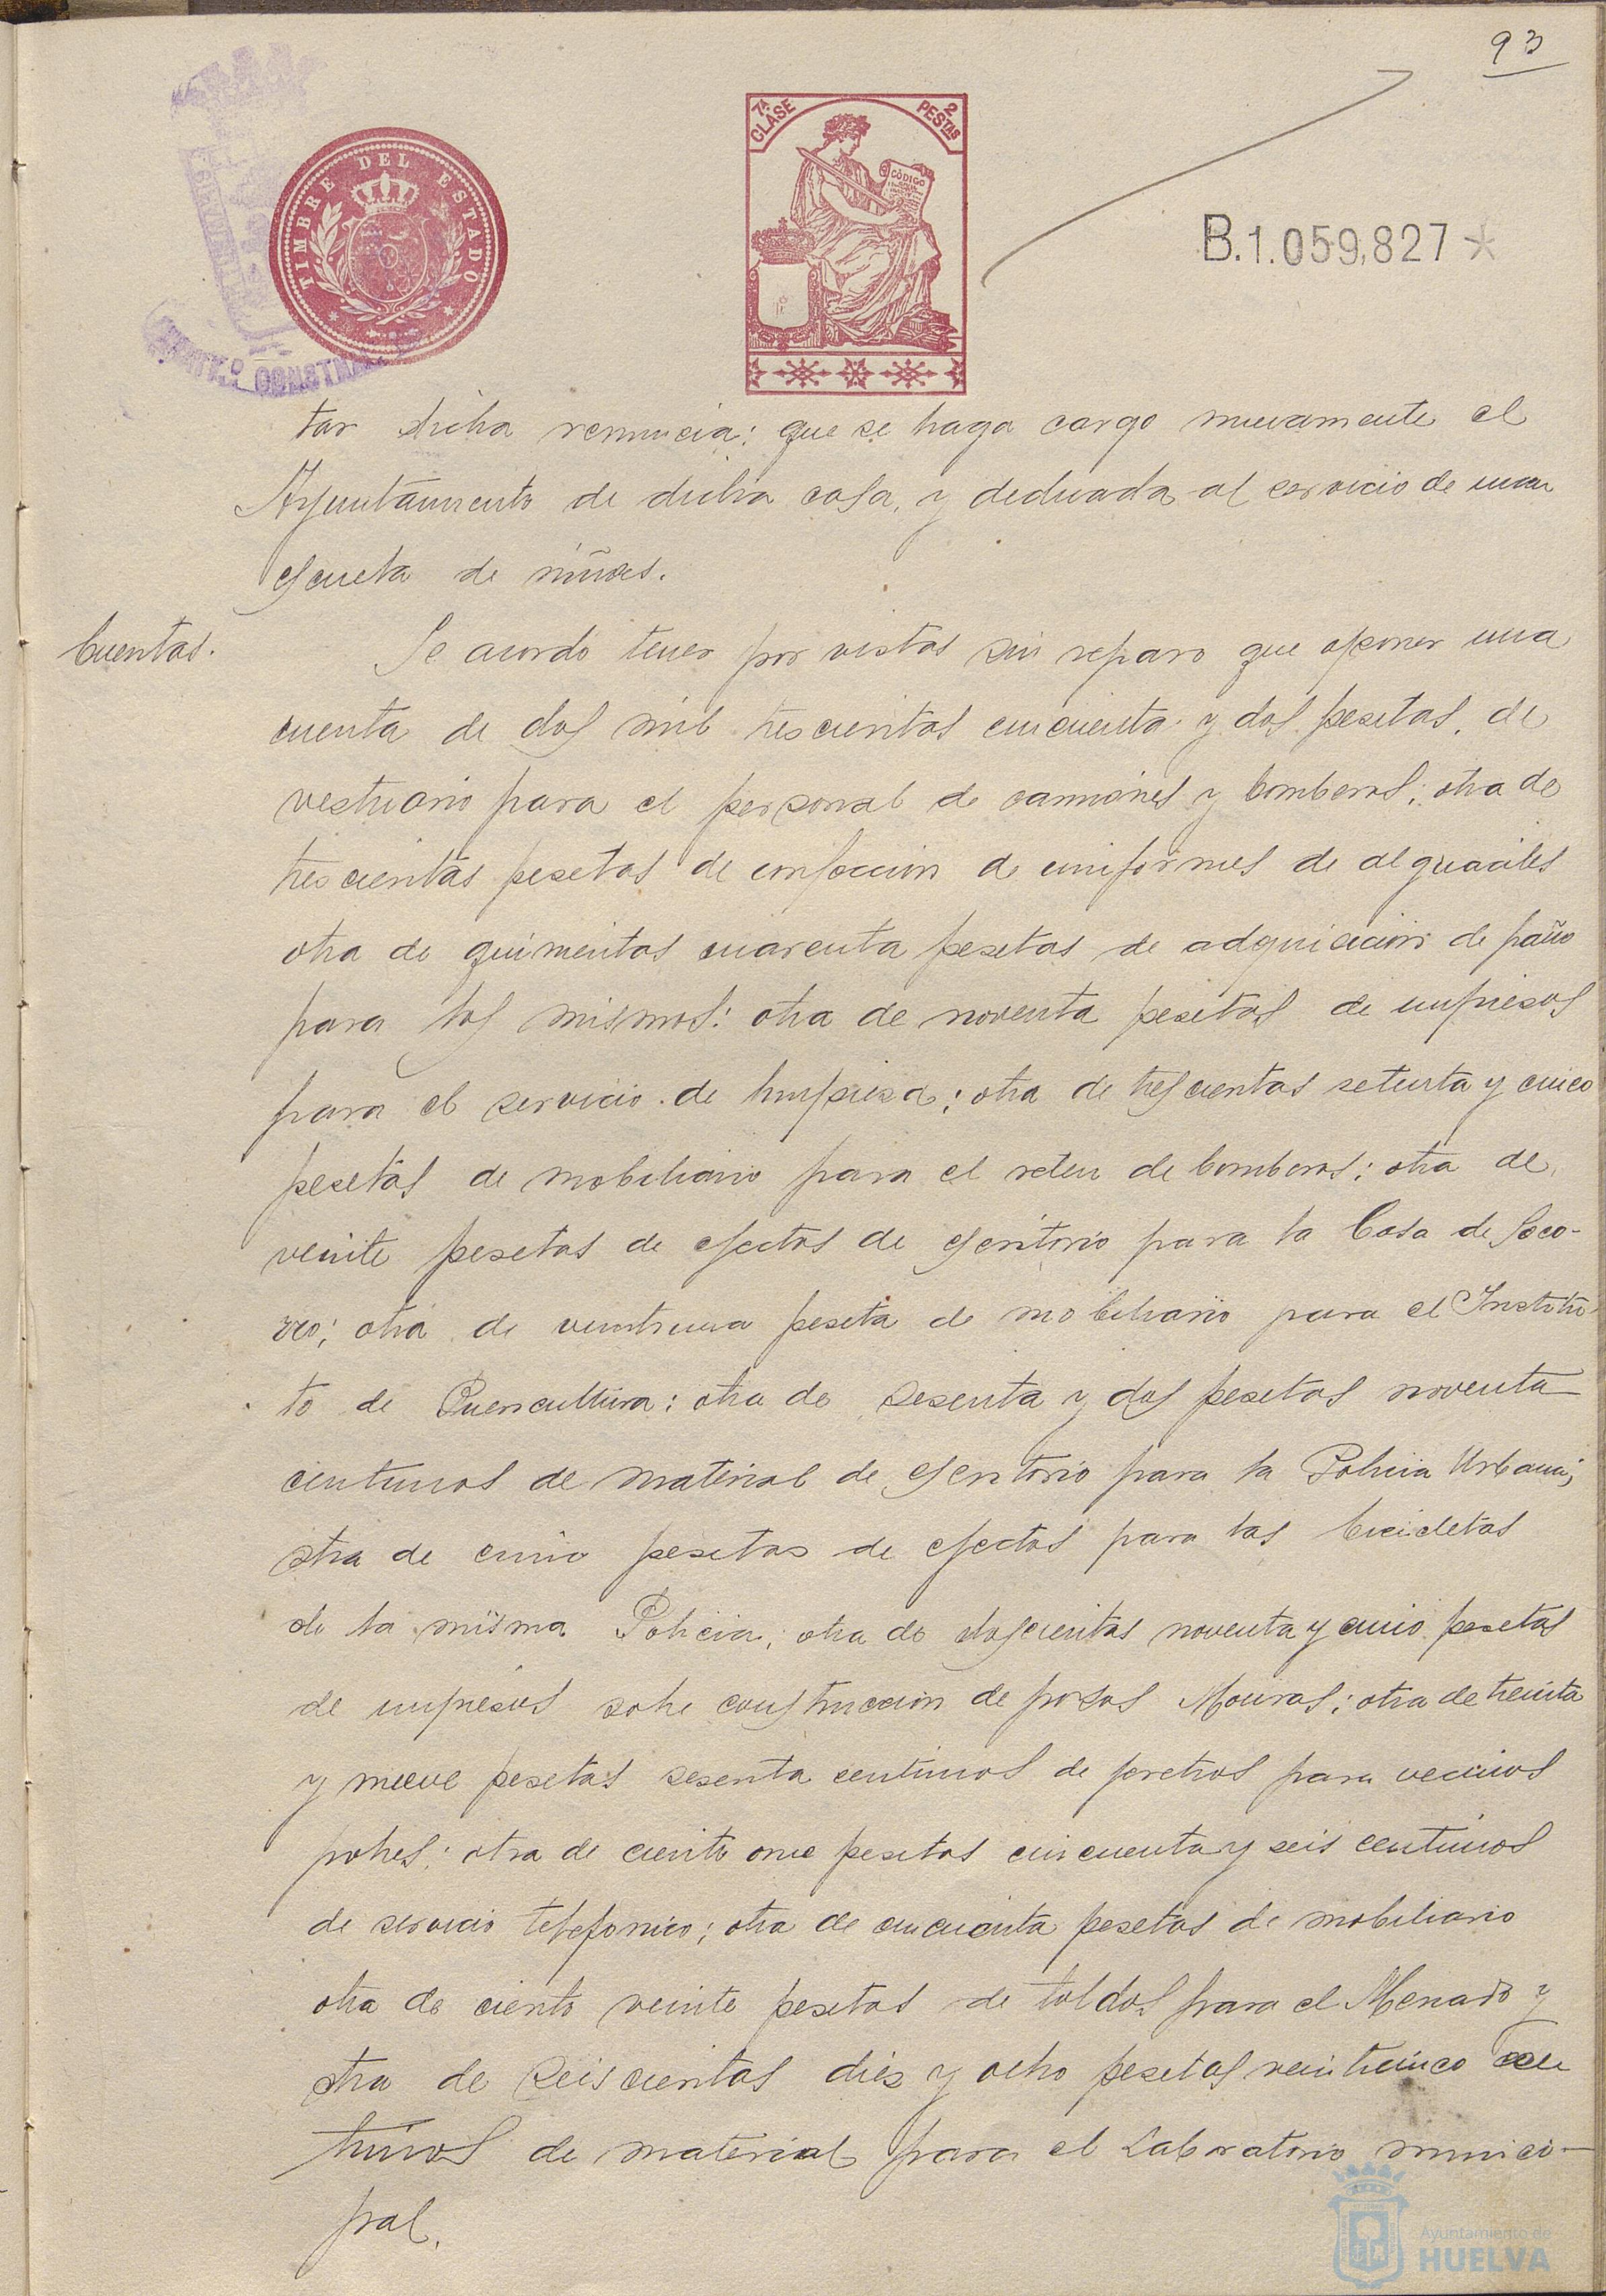 93
7ª CLASE
2 PESTAS
CÓDIGO
TIMBRE DEL ESTADO
B.1.059,827
tar dicha renuncia: que se haga cargo nuevamente el
Ayuntamiento de dicha casa, y dedicada al servicio de una
escuela de niños.
Cuentas.
Se acordo tener por vistas sin reparo que oponer una
cuenta de dos mil trescientas cincuenta y dos pesetas, de
vestuario para el personal de camiones y bomberos; otra de
trescientas pesetas de confeccion de uniformes de alguaciles
otra de quinientas cuarenta pesetas de adquisicion de paño
para los mismos: otra de noventa pesetas de impresos
para el servicio de limpieza; otra de trescientas setenta y cinco
pesetas de mobiliario para el reten de bomberos; otra de
veinte pesetas de efectos de escritorio para la Casa de Soco-
rro; otra de veintiuna peseta de mobiliario para el Institu-
to de Puericultura: otra de sesenta y dos pesetas noventa
centimos de material de escritorio para la Policia Urbana;
otra de cinco pesetas de efectos para las bicicletas
de la misma Policia; otra de doscientas noventa y cinco pesetas
de impresos sobre construccion de pozos Mouras; otra de treinta
y nueve pesetas sesenta centimos de feretros para vecinos
pobres; otra de ciento once pesetas cincuenta y seis centimos
de servicio telefonico; otra de cincuenta pesetas de mobiliario
otra de ciento veinte pesetas de toldos para el Mercado y
otra de seiscientas diez y ocho pesetas veinticinco cen
timos de material para el Laboratorio munici-
pal.
Ayuntamiento de
HUELVA